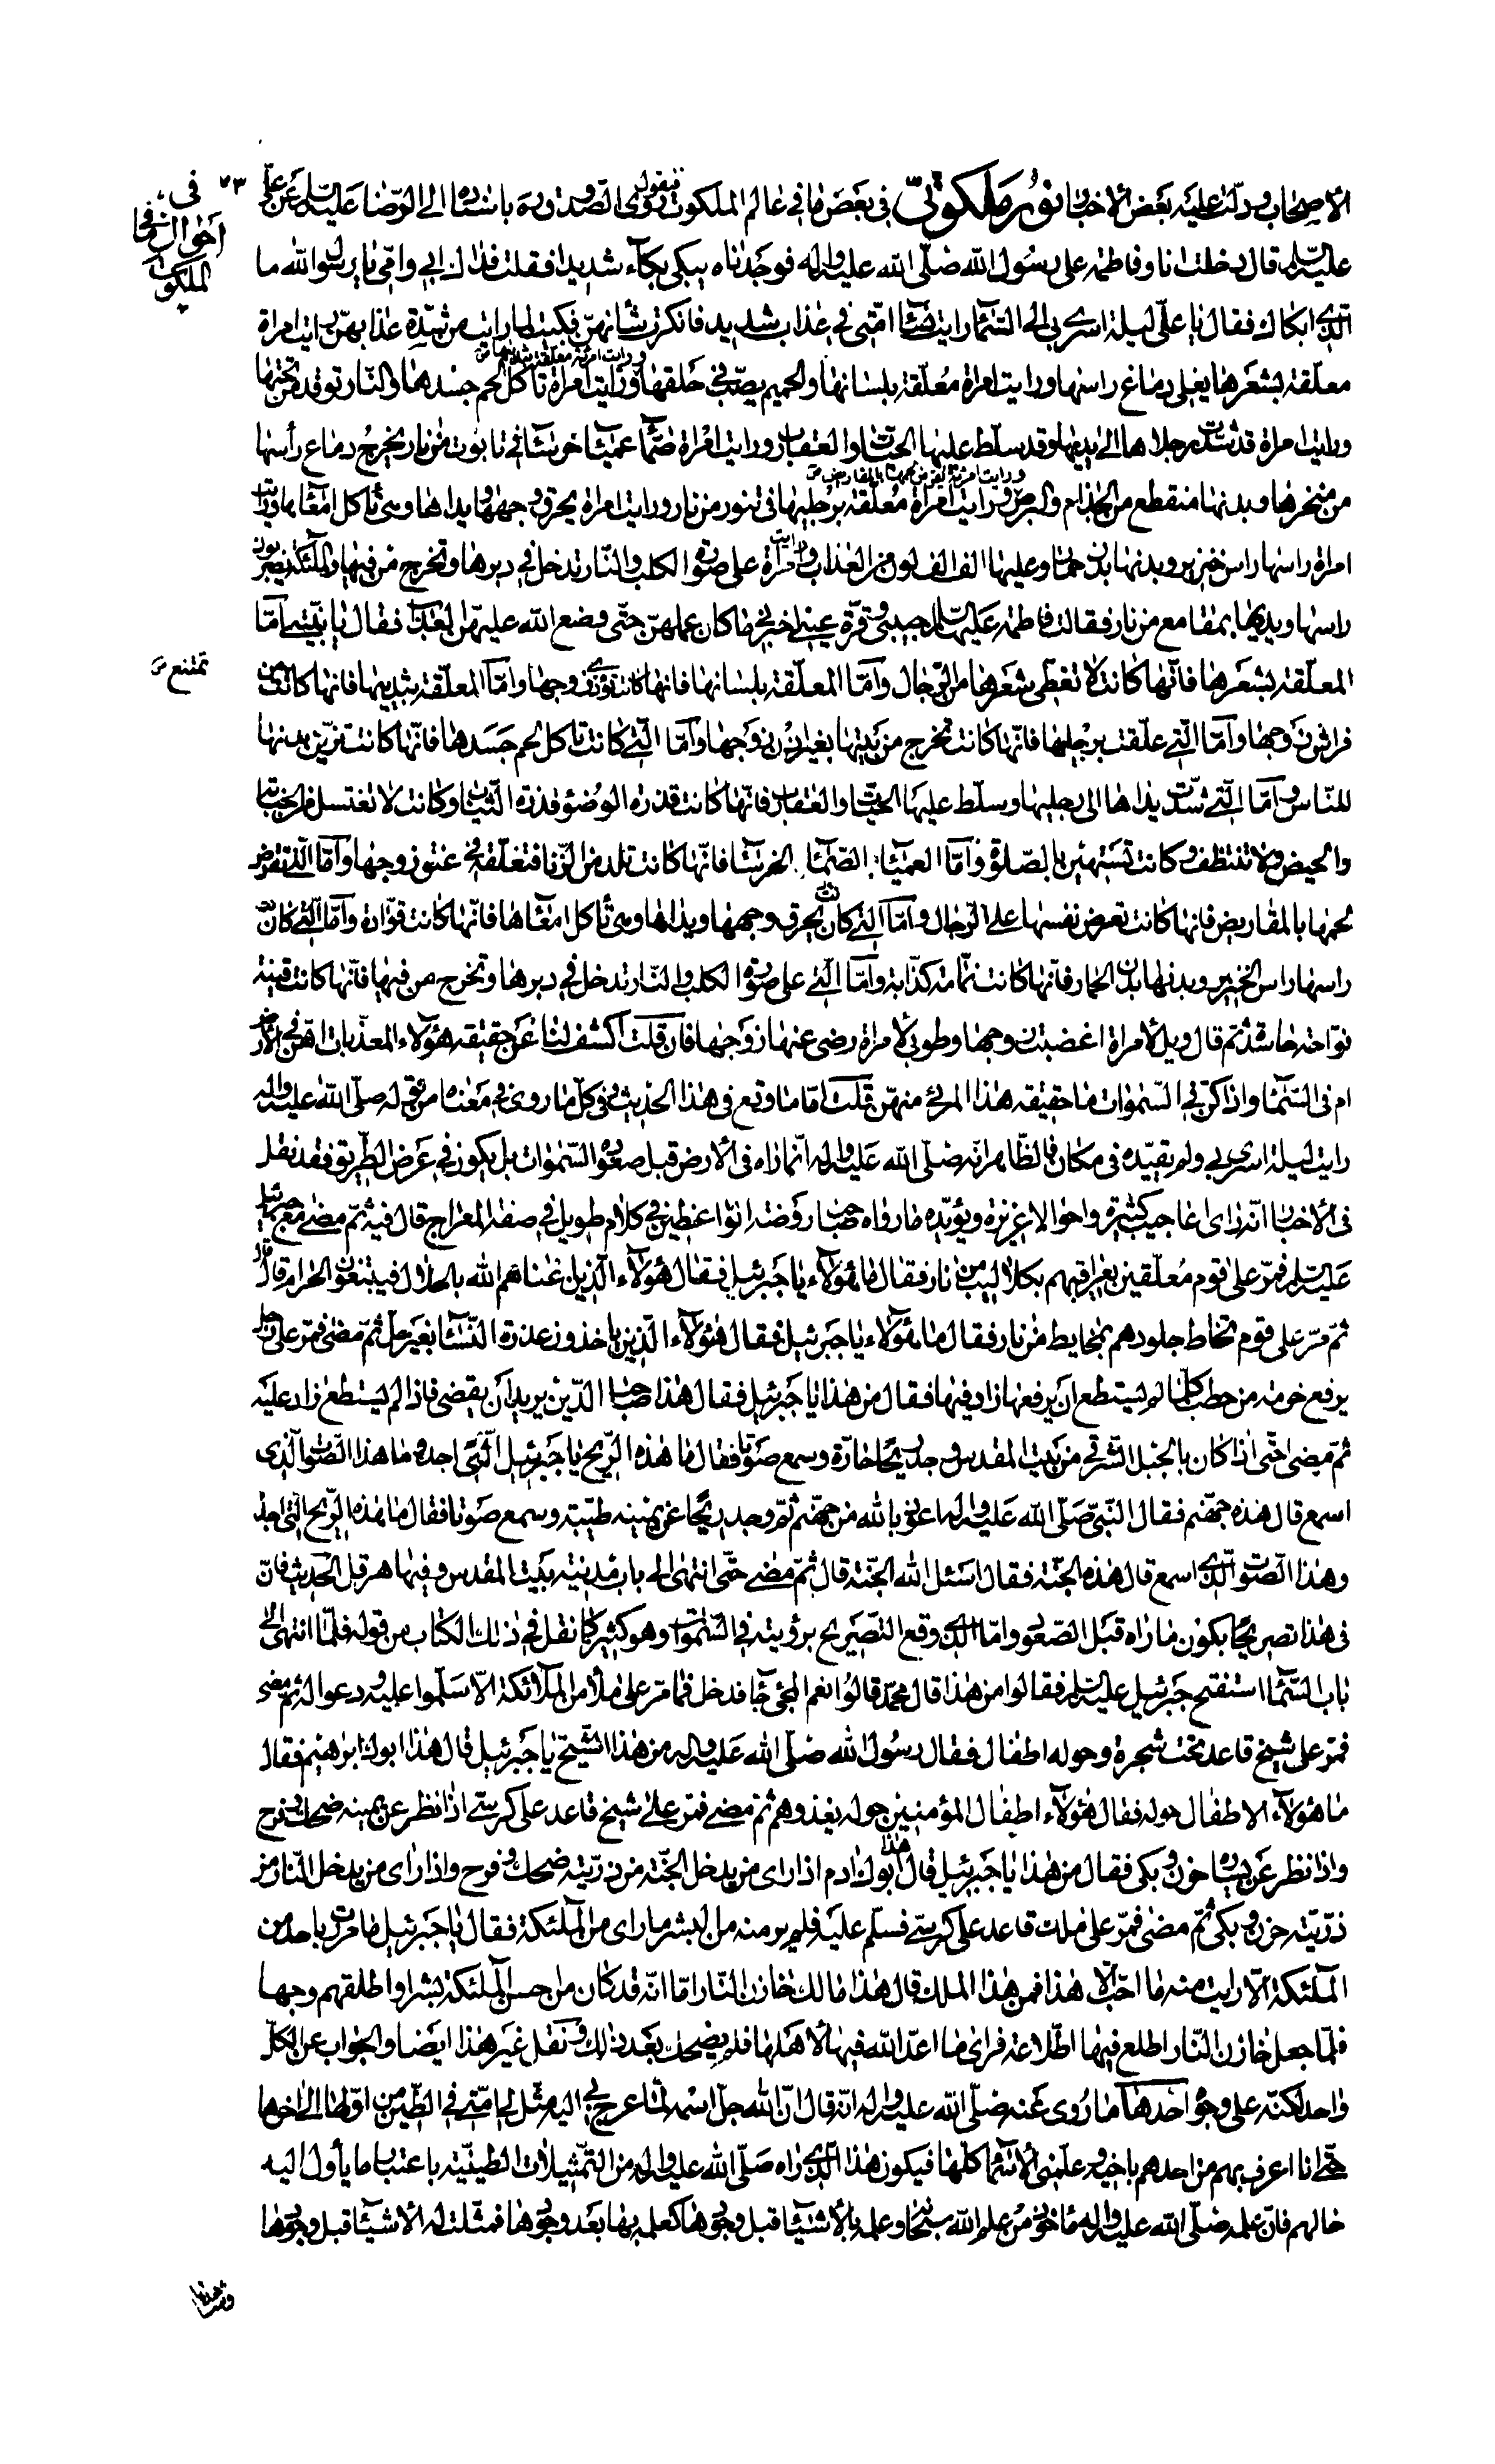 ٧٣ في احوال النسخا الملكوت
الأصحاب ودلّت عليه بعض الأخبار نور ملكوتيّ في بعض ما في عالم الملكوت فنقول روى الصدوق ره باسناده الى الرّضا عليه السلم عن علي
عليه السلم قال دخلت انا وفاطمة على رسول الله صلّى الله عليه واله فوجدناه يبكي بكآء شديدا فقلت فداك ابي وامّي يا رسول الله ما
الّذي ابكاك فقال يا علي ليلة اسرى بي الى السّمآء رايت نسآء امّتي في عذاب شديد فانكرت شأنهنّ فبكيت لما رايت من شدّة عذابهنّ رايت امراة
معلّقة بشعرها يغلي دماغ راسها ورايت امراة معلّقة بلسانها والحميم يصبّ في حلقها ورايت امرئة معلّقة بثدييها ورايت امراة تأكل لحم جسدها والنّار توقد من تحتها
ورايت امراة قد شدّت رجلاها الى يديها وقد سلّط عليها الحيّات والعقارب ورايت امراة صمّآء عميآء خرسآء في تابوت من نار يخرج دماغ رأسها
من منخرها وبدنها متقطع من الجذام والبرص ورايت امراة معلّقة برجليها في تنور من نار ورايت امرئة يقرض لحمها بالمقاريض ورايت امراة يحرق وجهها ويداها وهي تأكل امعآءها ورايت
امراة راسها راس خنزير وبدنها بدن حمار وعليها الف الف لون من العذاب ورايت امراة على صورة الكلب والنّار تدخل في دبرها وتخرج من فيها والملئكة يضربون
راسها وبدنها بمقامع من نار فقالت فاطمة عليها السّلم حبيبي وقرّة عيني اخبرني ما كان عملهنّ حتّى وضع الله عليهنّ العذاب فقال يا بنيّتي امّا
المعلّقة بشعرها فانّها كانت لا تغطّي شعرها من الرّجال وامّا المعلّقة بلسانها فانها كانت تؤذي زوجها وامّا المعلّقة بثدييها فانها كانت تمتنع من
فراش زوجها وامّا الّتي علّقت برجليها فانّها كانت تخرج من بيتها بغير اذن زوجها وامّا الّتي كانت تأكل لحم جسدها فانّها كانت تزيّن بدنها
للنّاس وامّا الّتي شدّت يداها الى رجليها وسلّط عليها الحيّات والعقارب فانّها كانت قذرة الوضوء قذرة الثّياب وكانت لا تغتسل من الجنابة
والحيض ولا تتنظف وكانت تستهين بالصّلوة وامّا العميآء الصّمآء الخرسآء فانّها كانت تلد من الزّنا فتعلّقه في عنق زوجها وامّا الّتي تقرض
لحمها بالمقاريض فانها كانت تعرض نفسها على الرّجال وامّا الّتي كان يحرق وجهها ويداها وهي تأكل امعآءها فانّها كانت قوّادة وامّا الّتي كان
راسها راس الخنزير وبدنها بدن الحمار فانّها كانت نمّامة كذّابة وامّا الّتي على صورة الكلب والنّار تدخل في دبرها وتخرج من فيها فانّها كانت قينة
نوّاحة حاسدة ثمّ قال ويل لأمراة اغضبت زوجها وطوبى لأمراة رضي عنها زوجها فان قلت اكشف لنا عن حقيقة هؤلآء المعذّبات اهنّ في الأرض
ام في السّمآء واذا كنّ في السّموات فما حقيقة هذا المرئي منهنّ قلت امّا ما وقع في هذا الحديث وفي كلّ ما روى في معناه من قوله صلّى الله عليه واله
رايت ليلة اسرى بي ولم يقيّده في مكان فالظّاهر انّه صلّى الله عليه واله انّما راه في الأرض قبل صعوده السّموات بل يكون في عرض الطّريق فقد نقل
في الأخبار انّه راى اعاجيب كثيرة واحوالا غريزة ويؤيّده ما رواه صاحب روضة الواعظين في كلام طويل في صفة المعراج قال فيه ثمّ مضى مع جبرئيل
عليه السلم فمرّ على قوم معلّقين بعراقيبهم بكلاليب من نار فقال ما هؤلآء يا جبرئيل فقال هؤلآء الّذين اغناهم الله بالحلال فيبتغون الحرام قال
ثمّ مرّ على قوم تخاط جلودهم بمخايط من نار فقال ما هؤلآء يا جبرئيل فقال هؤلآء الّذين ياخذون عذرة النّسآء بغير حلّ ثمّ مضى فمرّ على رجل
يرفع حزمة من حطب كلّما لم يستطع ان يرفعها زاد فيها فقال من هذا يا جبرئيل فقال هذا صاحب الدّين يريد ان يقضي فاذا لم يستطع زاد عليه
ثمّ مضى حتّى اذا كان بالجبل الشّرقي من بيت المقدس وجد ريحا حارّة وسمع صوتا فقال ما هذه الرّيح يا جبرئيل الّتي اجدها وما هذا الصّوت الّذي
اسمع قال هذه جهنّم فقال النّبيّ صلّى الله عليه واله اعوذ بالله من جهنّم ثمّ وجد ريحا عن يمينه طيّبة وسمع صوتا فقال ما هذه الرّيح الّتي اجد
وهذا الصّوت الّذي اسمع قال هذه الجنّة فقال اسئل الله الجنّة قال ثمّ مضى حتّى انتهى الى باب مدينة بيت المقدس وفيها هرقل الحديث فانّ
في هذا تصريحا بكون ما راه قبل الصّعود وامّا الّذي وقع التصريح برؤيته في السّموات وهو كثير كما نقل في ذلك الكتاب من قوله فلمّا انتهى الى
باب السّمآء استفتح جبرئيل عليه السلم فقالوا من هذا قال محمّد قالوا نعم المجئ جآء فدخل فما مرّ على ملأ من الملآئكة الّا سلّموا عليه ودعوا له ثمّ مضى
فمرّ على شيخ قاعد تحت شجرة وحوله اطفال فقال رسول الله صلّى الله عليه واله من هذا الشّيخ يا جبرئيل قال هذا ابوك ابرهيم فقال
ما هؤلآء الاطفال حوله فقال هؤلآء اطفال المؤمنين حوله يغذوهم ثمّ مضى فمرّ على شيخ قاعد على كرسيّ اذا نظر عن يمينه ضحك وفرح
واذا نظر عن يساره حزن وبكى فقال من هذا يا جبرئيل قال هذا ابوك ادم اذا راى من يدخل الجنّة من ذرّيته ضحك وفرح واذا راى من يدخل النّار من
ذرّيّته حزن وبكى ثمّ مضى فمرّ على ملك قاعد على كرسيّ فسلّم عليه فلم ير منه من البشر ما راى من الملئكة فقال يا جبرئيل ما مررت باحد من
الملئكة الّا رايت منه ما احبّ الّا هذا فمن هذا الملك قال هذا مالك خازن النّار امّا انّه قد كان من احسن الملئكة بشرا واطلقهم وجها
فلمّا جعل خازن النّار اطلع فيها اطّلاعة فراى ما اعدّ الله فيها لأهلها فلم يضحك بعد ذلك ونقل غير هذا ايضا والجواب عن الكلّ
واحد لكنّه على وجوه احدها ما روى عنه صلّى الله عليه واله انّه قال انّ الله جلّ اسمه لمّا عرج بي اليه مثّل لي امّتي في الطّين من اوّلها الى اخرها
حتّى انا اعرف بهم من احدهم باخيه وعلّمني الأسمآء كلّها فيكون هذا الّذي راه صلّى الله عليه واله من التمثيلات الطينيّة باعتبار ما يأول اليه
حالهم فانّ علمه صلّى الله عليه واله مأخوذ من علم الله سبحانه وعلمه بالأشيآء قبل وجودها كعلمه بها بعد وجودها فمثّلت له الأشيآء قبل وجودها